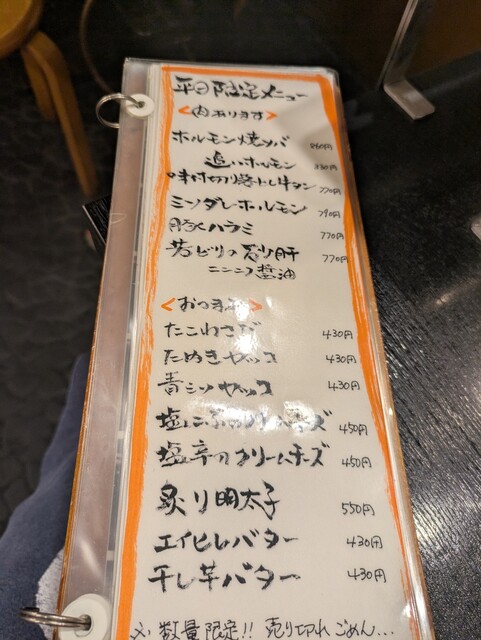 平日限定メニュー
<肉あります>
ホルモン焼ソバ 860円
追いホルモン 330円
味付切り落とし牛タン 770円
ミソダレホルモン 790円
豚ハラミ 770円
若どりの 肝 770円
ニンニク醤油
<おつまみ>
たこわさび 430円
たぬきヤッコ 430円
青シソヤッコ 430円
塩こぶクリームチーズ 450円
塩辛のクリームチーズ 450円
炙り明太子 550円
エイヒレバター 430円
干し芋バター 430円
※数量限定!! 売り切れごめん...